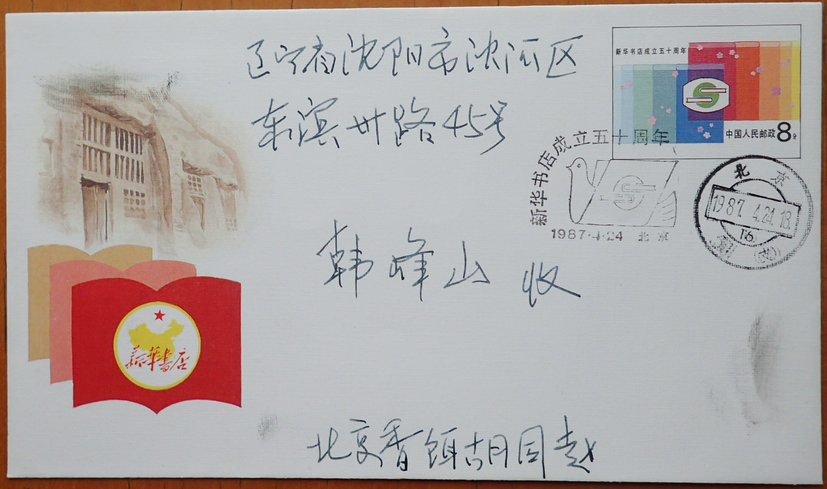 新华书店成立五十周年
中国人民邮政 8分
辽宁省沈阳市沈河区
东滨卅路45号
新华书店成立五十周年
1987·4·24 北京
北京
1987.4.24.18
16
韩峰山 收
新华书店
北京香饵胡同赵